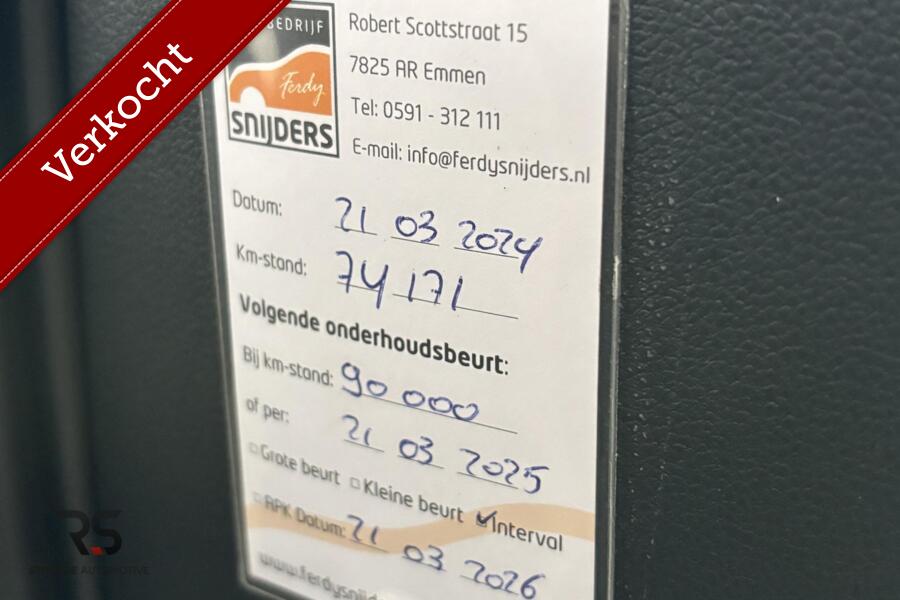 Verkocht
BEDRIJF
Ferdy
SNIJDERS
Robert Scottstraat 15
7825 AR Emmen
Tel: 0591 - 312 111
E-mail: info@ferdysnijders.nl
Datum: 21 03 2024
Km-stand: 74 171
Volgende onderhoudsbeurt:
Bij km-stand: 90 000
of per: 21 03 2025
Grote beurt Kleine beurt Interval
APK Datum: 21 03 2026
www.ferdysnijd
RS
AUTOMOTIVE